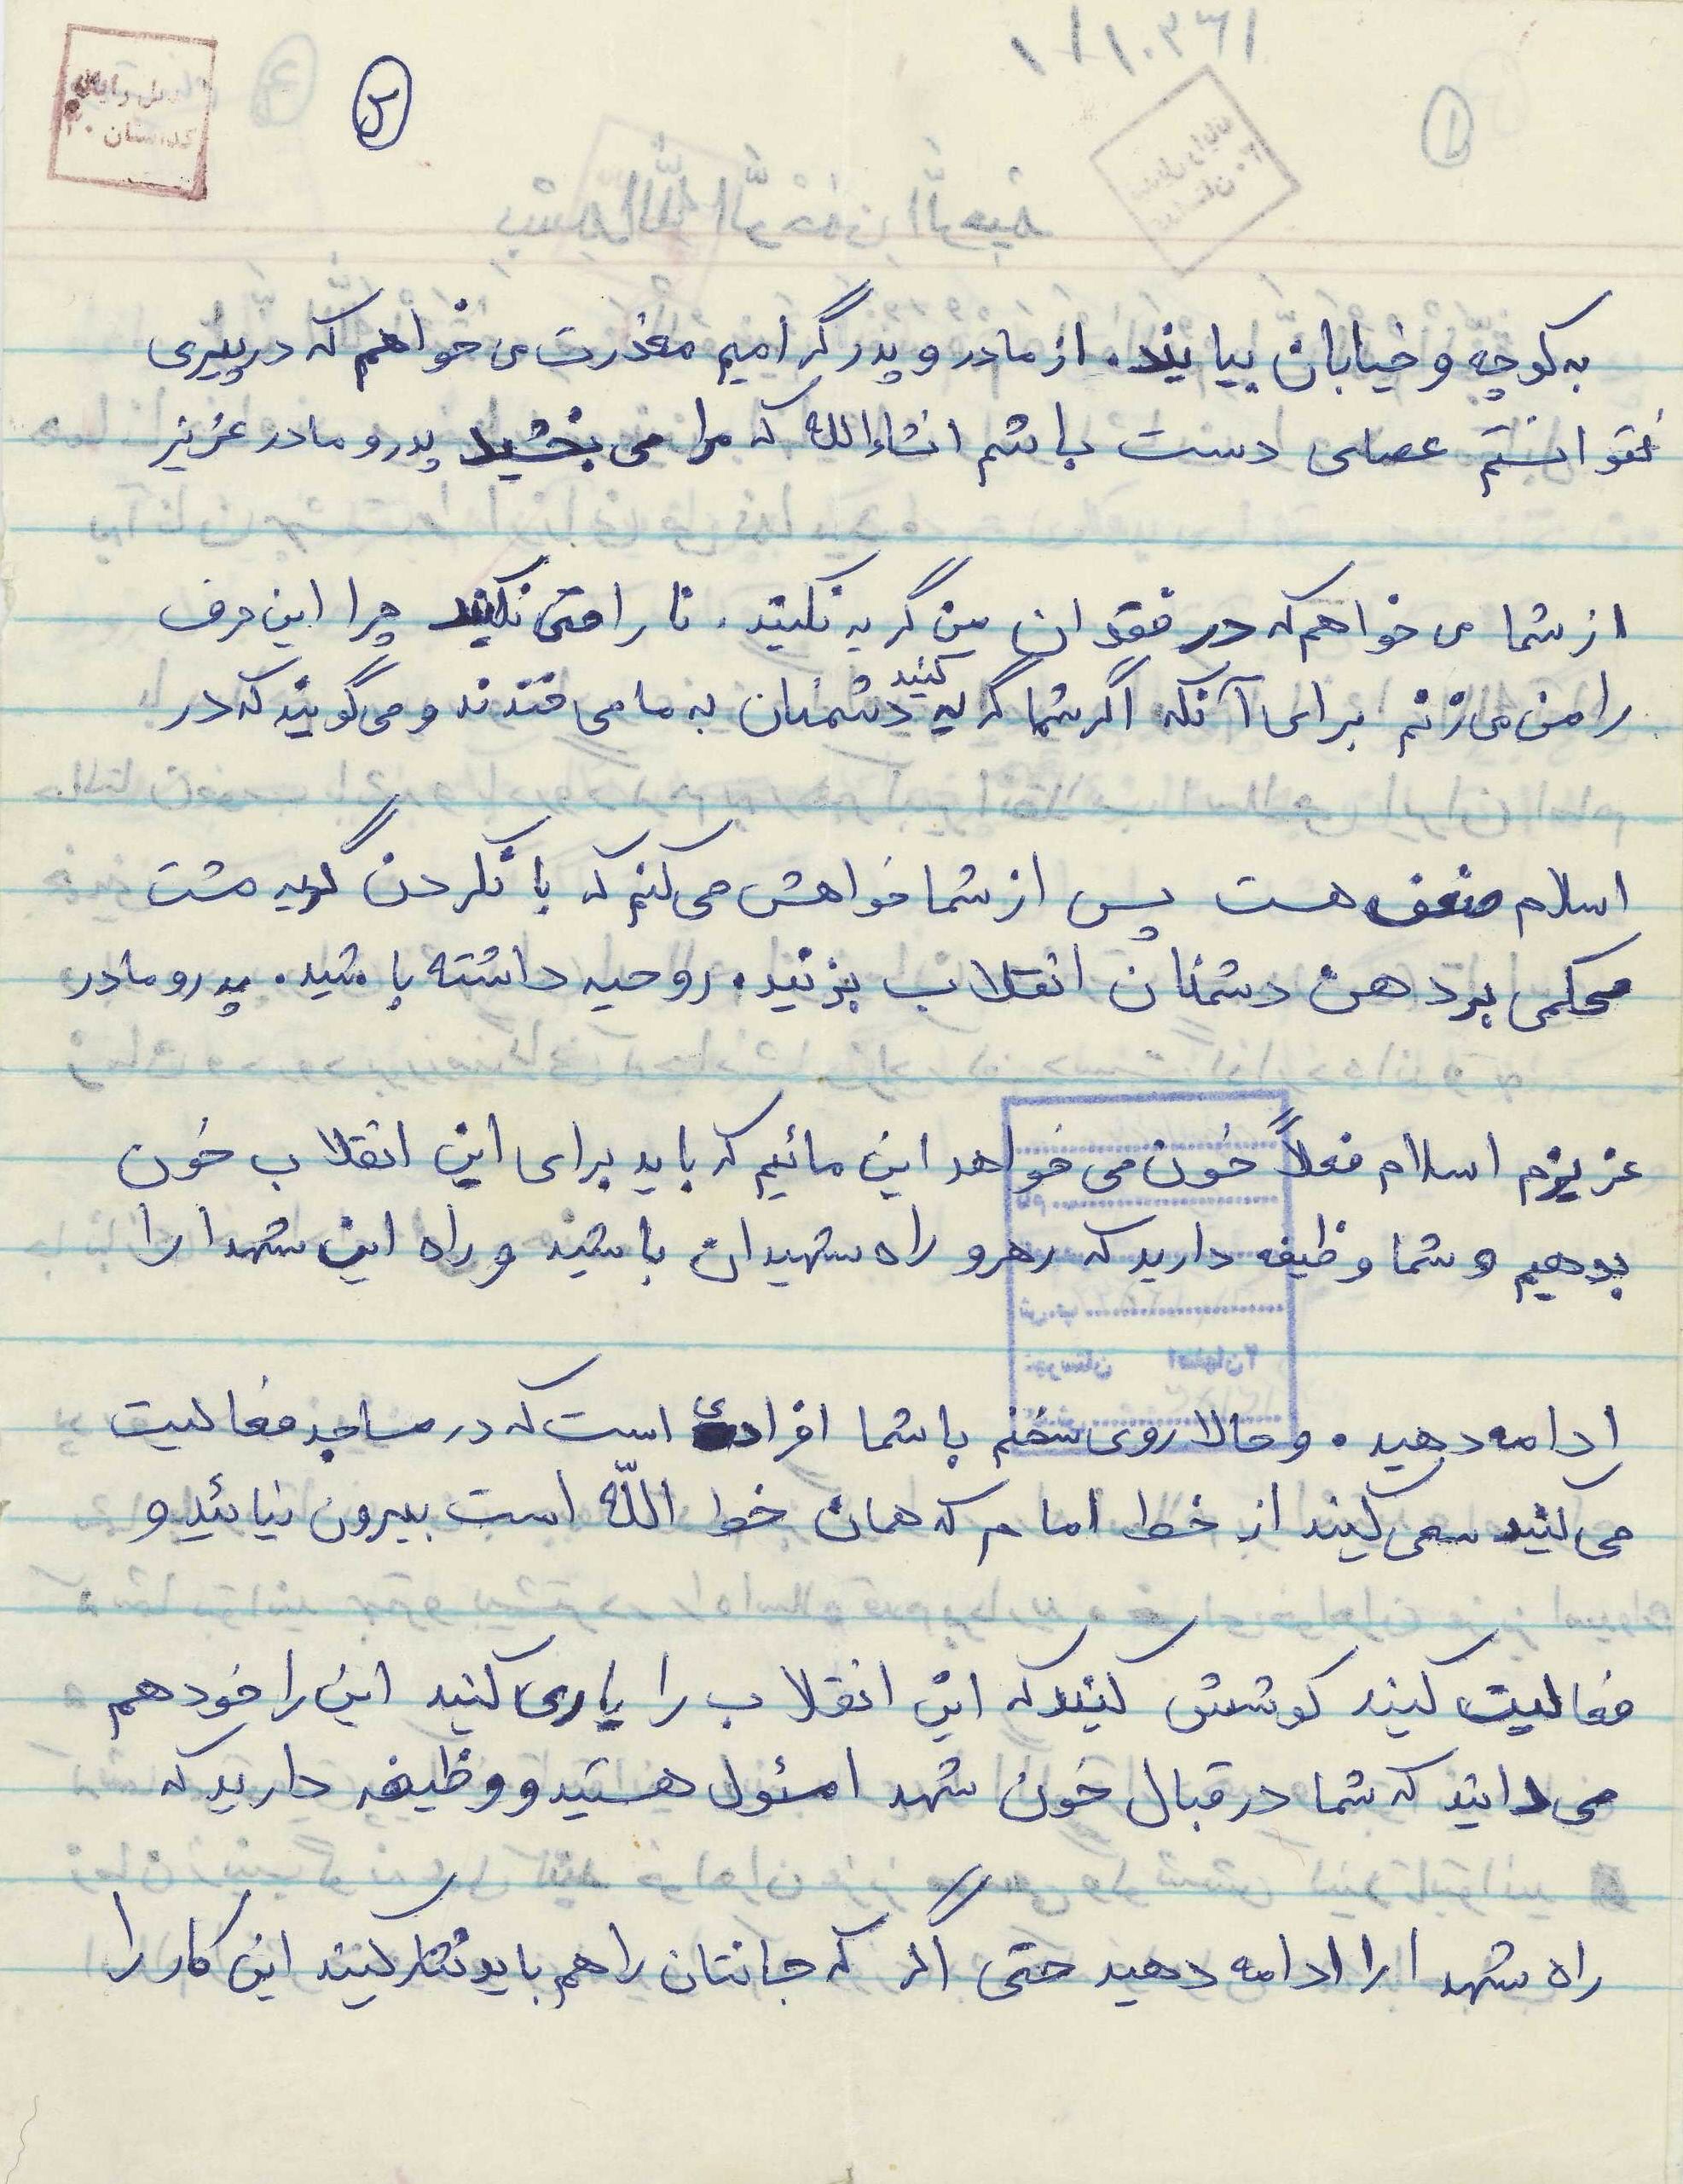 به کوچه و خیابان بیایند. از مادر و پدر گرامیم معذرت می خواهم که در پیری
نتوانستم عصای دست باشم انشاءالله که مرا می بخشید پدر و مادر عزیز
از شما می خواهم که در فقدان من گریه نکنید. ناراحتی نکنید چرا این حرف
را من می زنم برای آنکه اگر شما گریه کنید دشمنان به ما می خندند و می گویند که در
اسلام ضعف هست پس از شما خواهش می کنم که با نکردن گریه مشت
محکمی بر دهن دشمنان انقلاب بزنید. روحیه داشته باشید. پدر و مادر
عزیزم اسلام فعلاً خون می خواهد این مائیم که باید برای این انقلاب خون
بدهیم و شما وظیفه دارید که رهرو راه شهیدان باشید و راه این شهدا را
ادامه دهید. و حالا روی سخنم با شما افرادی است که در مساجد فعالیت
می کنید سعی کنید از خط امام که همان خط اللّه است بیرون نیائید و
فعالیت کنید کوشش کنید که این انقلاب را یاری کنید این را خود هم
می دانید که شما در قبال خون شهدا مسئول هستید و وظیفه دارید که
راه شهدا را ادامه دهید حتی اگر که جانتان را هم باید نثار کنید این کار را